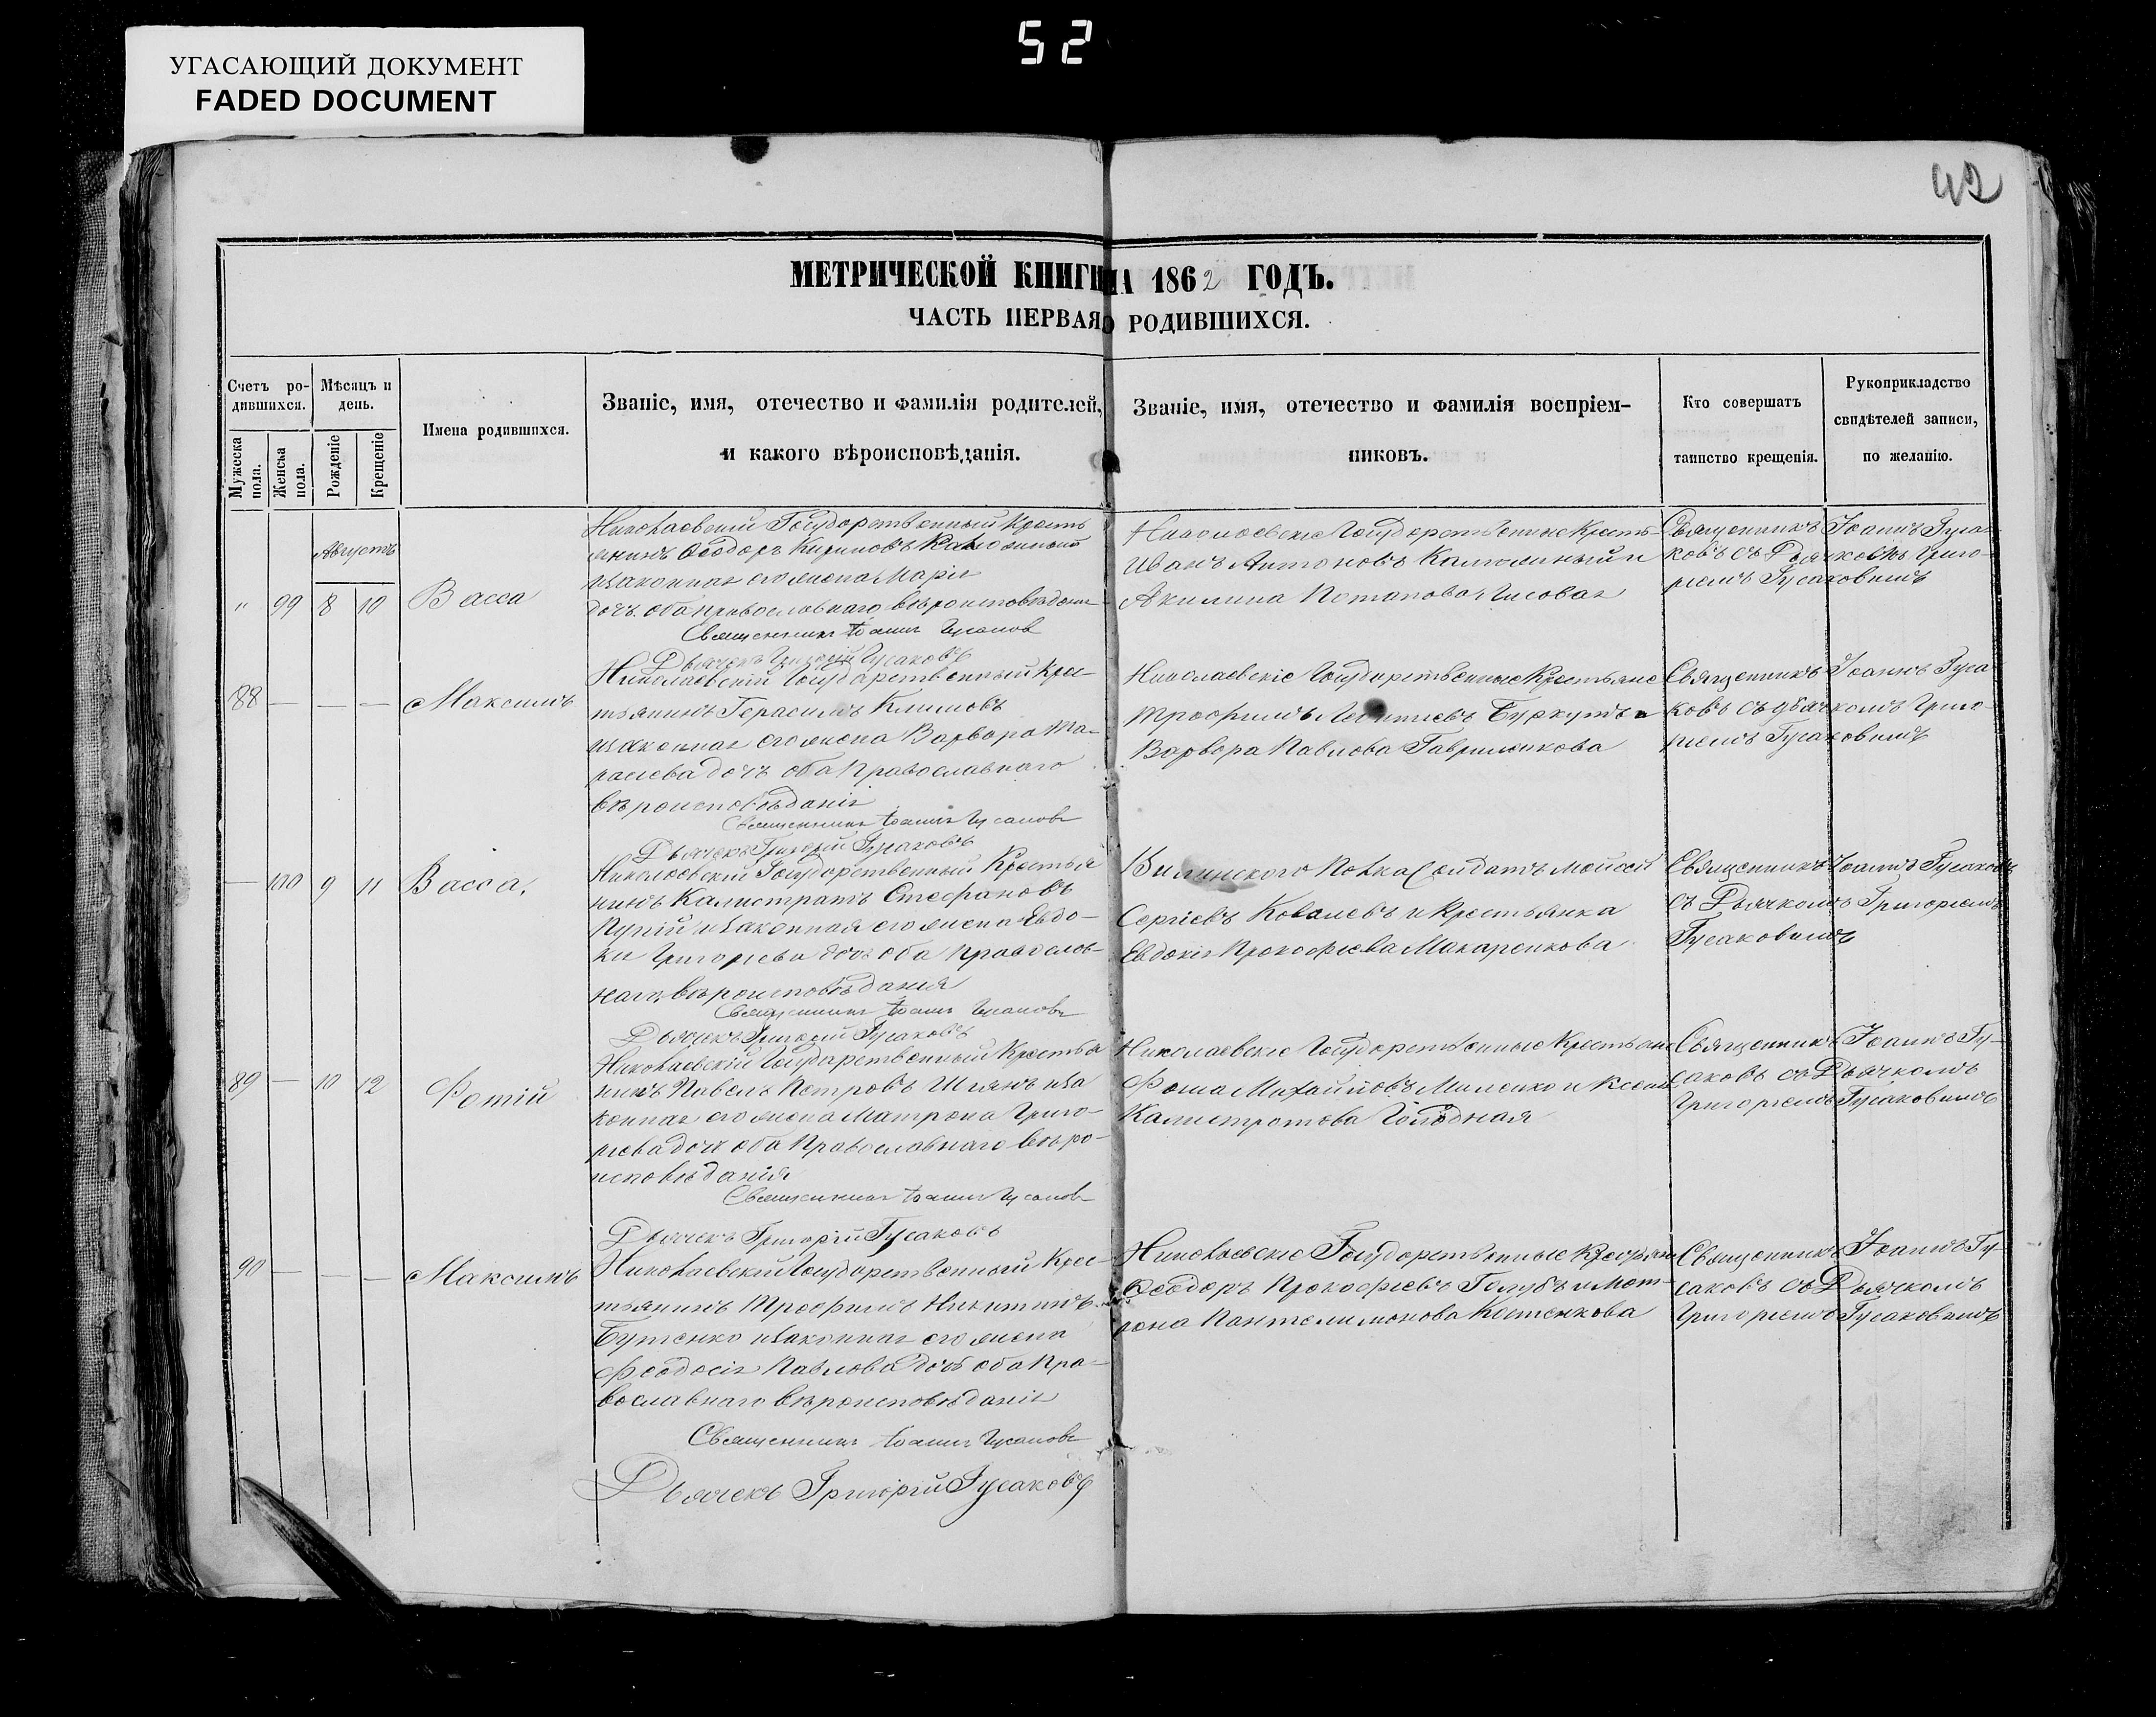 52
УГАСАЮЩИЙ ДОКУМЕНТ
FADED DOCUMENT
42
МЕТРИЧЕСКОЙ КНИГИ НА 1862 ГОДЪ.
ЧАСТЬ ПЕРВАЯ, О РОДИВШИХСЯ.
Счетъ ро-
дившихся.
Мужеска пола.
Женска пола.
Мѣсяцъ и
день.
Рожденіе
Крещеніе
Имена родившихся.
Званіе, имя, отечество и фамилія родителей,
и какого вѣроисповѣданія.
Званіе, имя, отечество и фамилія воспріем-
никовъ.
Кто совершатъ
таинство крещенія.
Рукоприкладство
свидѣтелей записи,
по желанію.
Августъ
" 99 8 10 Васса
Николаевскій Государственный Кресть
янинъ Ѳеодоръ
изаконная его жена Марія
дочь. оба православнаго вѣроисповѣданія
Священникъ Іоаннъ Гусаковъ
Дьячекъ Григорій Гусаковъ
Николаевскіе Государственные Кресть-
Иванъ Антоновъ Калюжный и
Акилина Потапова
Священникъ Іоаннъ Гуса-
ковъ съ Дьячкомъ Григо-
ріемъ Гусаковымъ
88 — — — Максимъ
Николаевскій Государственный Крес-
тьянинъ Герасимъ Климовъ
изаконная его жена Варвара Та-
расіева дочь оба Православнаго
вѣроисповѣданія
Священникъ Іоаннъ Гусаковъ
Дьячекъ Григорій Гусаковъ
Николаевскіе Государственные Крестьяне
Трофимъ Леонтіевъ и
Варвара Павлова Гавриленкова
Священникъ Іоаннъ Гуса
ковъ съ дьячкомъ Григо-
ріемъ Гусаковымъ
— 100 9 11 Васса,
Николаевскій Государственный Крестья
нинъ Калистратъ Стефановъ
Пупій изаконная его жена Евдо-
кія Григоріева дочь оба Православ-
наго вѣроисповѣданія
Священникъ Іоаннъ Гусаковъ
Дьячекъ Григорій Гусаковъ
Полка Солдатъ Мойсей
Сергіевъ Ковалевъ и Крестьянка
Евдокія Прокофіева Макаренкова
Священникъ Іоаннъ Гусаковъ
съ Дьячкомъ Григоріемъ
Гусаковымъ
89 — 10 12 Фотій
Николаевскій Государственный Крестья
нинъ Павелъ Петровъ иза
конная его жена Матрона Григо-
ріева дочь оба Православнаго вѣро-
исповѣданія
Священникъ Іоаннъ Гусаковъ
Дьячекъ Григорій Гусаковъ
Николаевскіе Государственные Крестьяне
Фома Михайловъ Миленко и Ксенія
Калистратова Голодная
Священникъ Іоаннъ Гу-
саковъ съ Дьячкомъ
Григоріемъ Гусаковымъ
90 — — — Максимъ
Николаевскій Государственный Крес-
тьянинъ Трофимъ Никитинъ
Бутенко изаконная его жена
Феодосія Павлова дочь оба Пра-
вославнаго вѣроисповѣданія
Священникъ Іоаннъ Гусаковъ
Дьячекъ Григорій Гусаковъ
Николаевскіе Государственные Крестьяне
Ѳеодоръ Прокофіевъ Голубъ и Мат-
рона Пантелимонова Костенкова
Священникъ Іоаннъ Гу-
саковъ съ Дьячкомъ
Григоріемъ Гусаковымъ